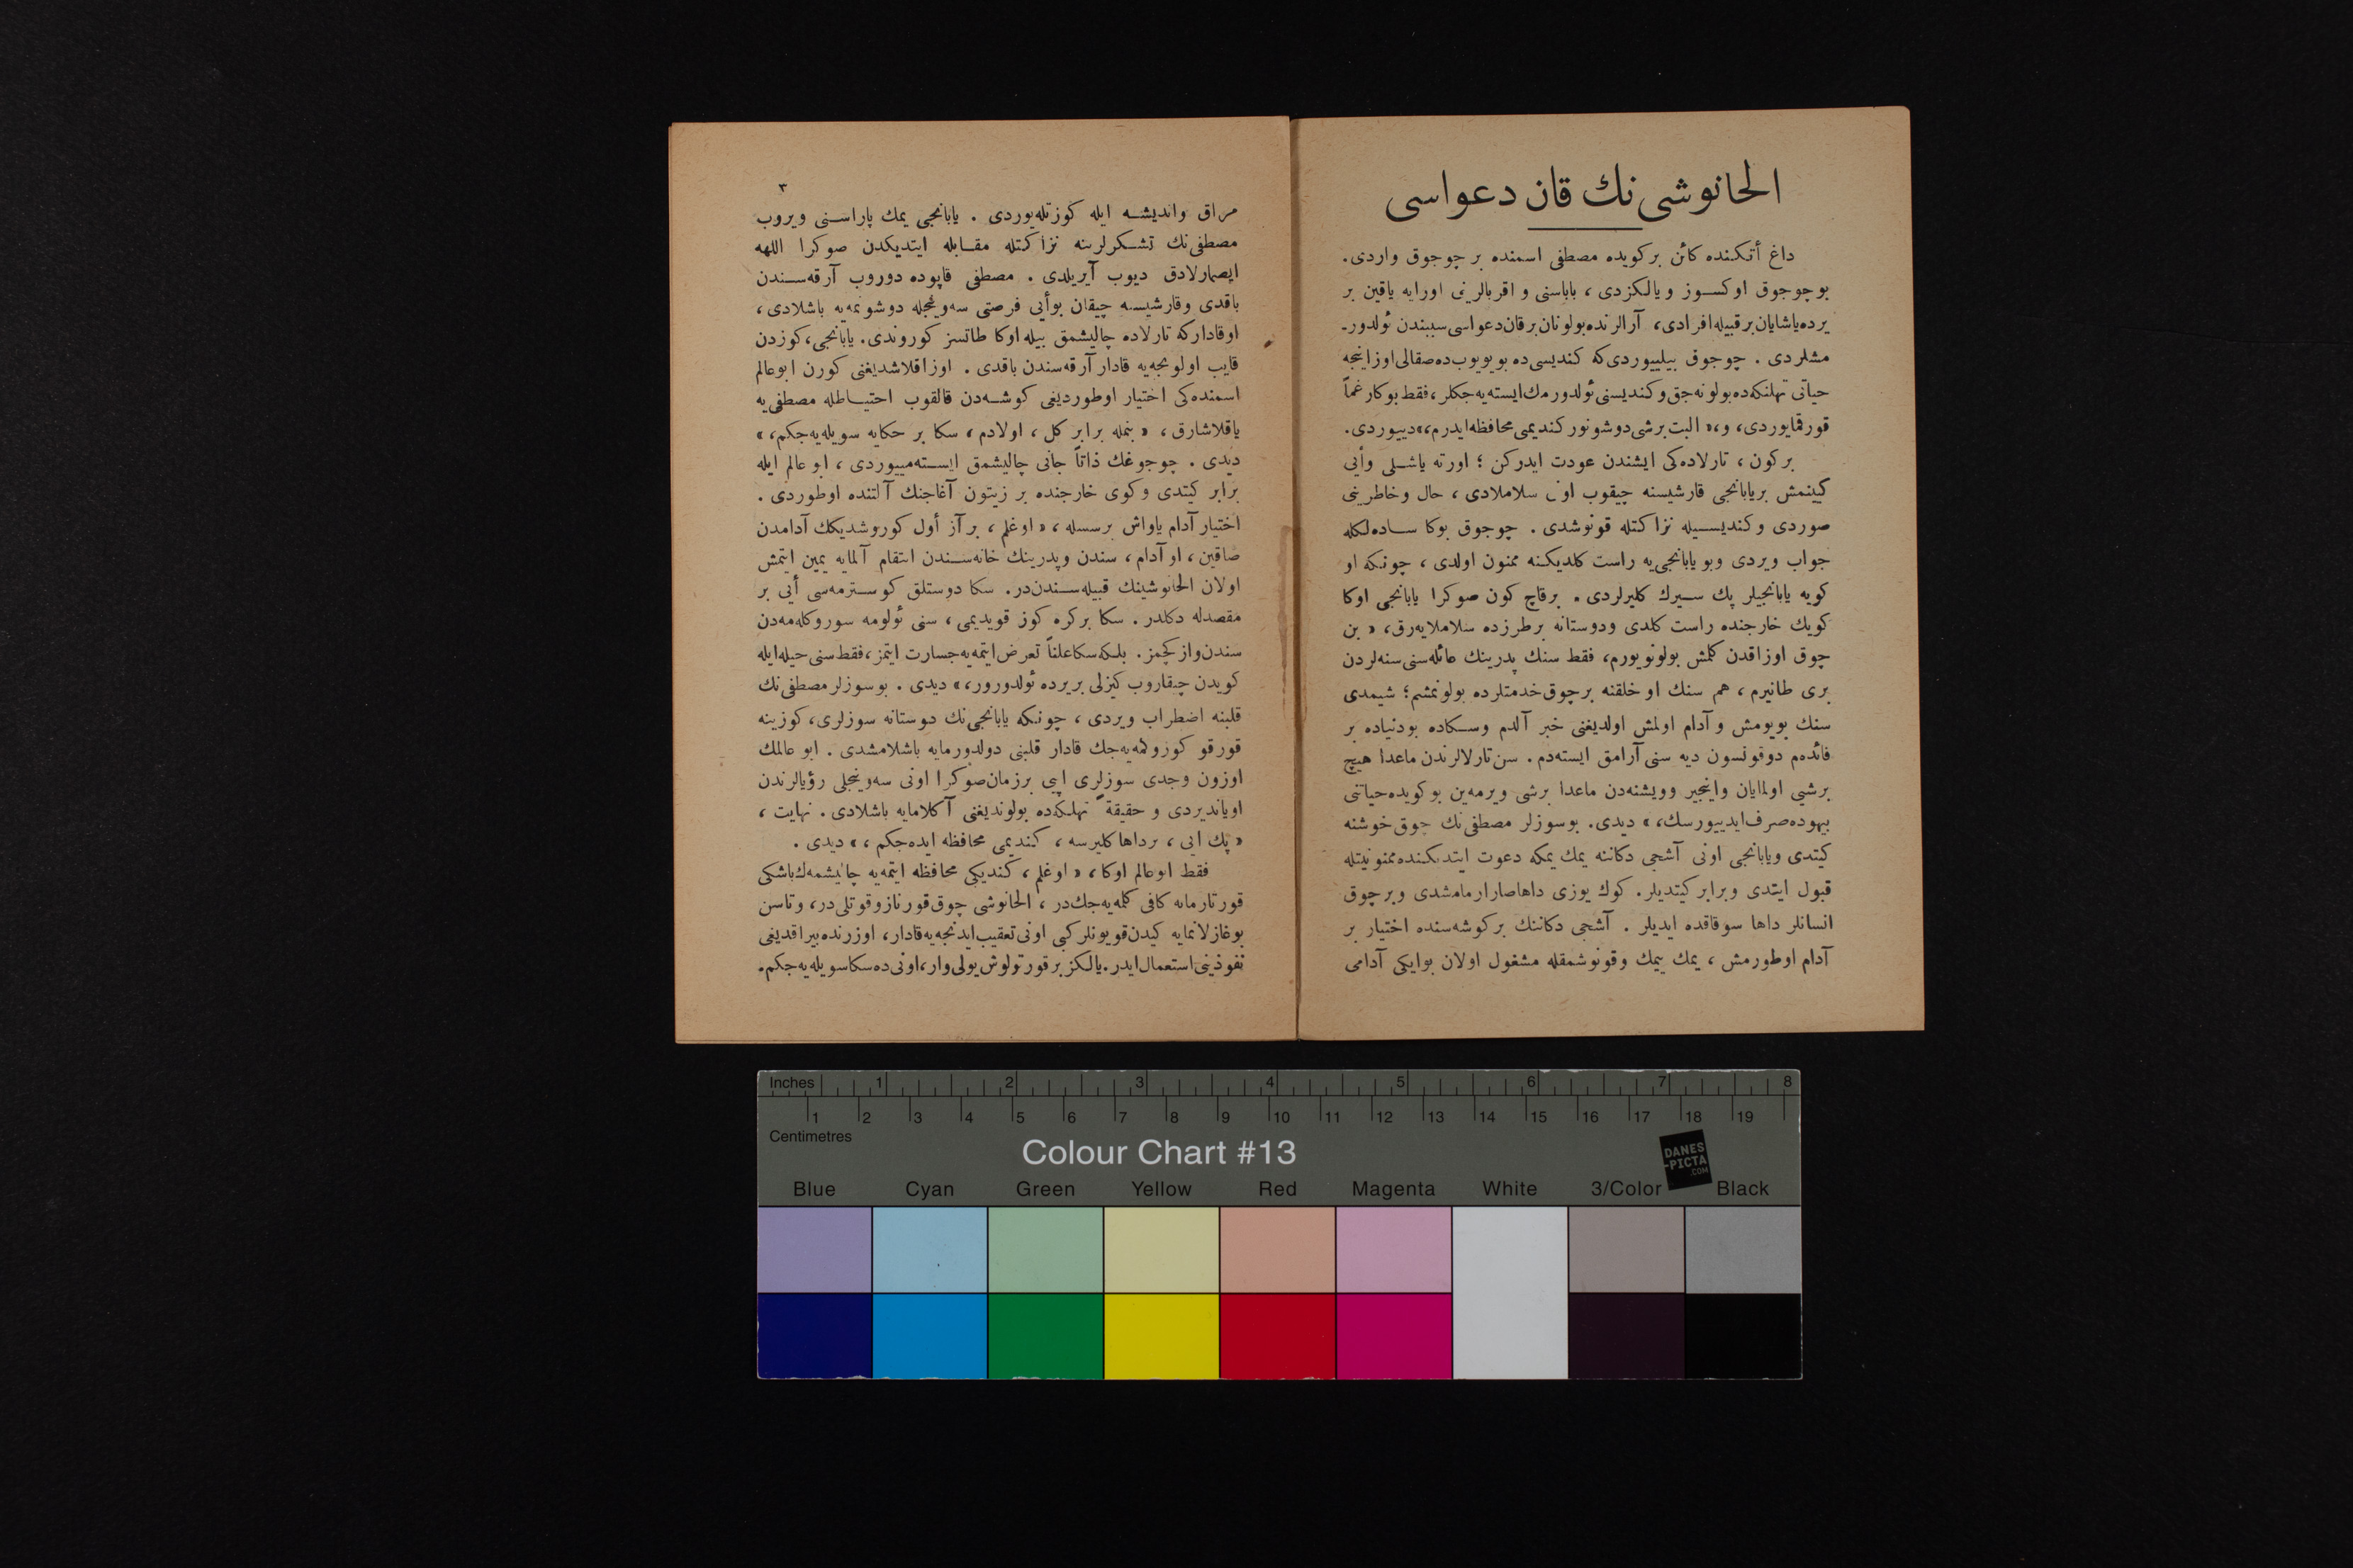 الحانوشی نك قان دعواسی
داغ أتكنده كائن بركویده مصطفی اسمنده بر چوجوق واردی.
بو چوجوق اوكسوز و یالكزدی ، باباسنی و اقربالرینی اورایه یاقین بر
یرده یاشایان بر قبیله افرادی، آرالرنده بولونان بر قان دعواسی سببندن ئولدور-
مشلردی . چوجوق بیلییوردی كه كندیسی ده بویویوب ده صقالی اوزاینجه
حیاتی تهلكه ده بولونه جق و كندیسنی ئولدورمك ایسته یه جكلر ، فقط بوكا رغماً
قورقمایوردی، و،« البت برشی دوشونور كندیمی محافظه ایدرم،» دییوردی.
بركون ، تارلاده كی ایشندن عودت ایدركن ؛ اورته یاشلی وأیی
كیینمش بریابانجی قارشیسنه چیقوب اونی سلاملادی ، حال و خاطرینی
صوردی و كندیسیله نزاكتله قونوشدی . چوجوق بوكا ساده لكله
جواب ویردی وبو یابانجی یه راست كلدیكنه ممنون اولدی ، چونكه او
كویه یابانجیلر پك سیرك كلیرلردی . برقاچ كون صوكرا یابانجی اوكا
كویك خارجنده راست كلدی ودوستانه برطرزده سلاملایه رق، « بن
چوق اوزاقدن كلمش بولونویورم، فقط سنك پدرینك عائله سنی سنه لردن
بری طانیرم ، هم سنك او خلقنه برچوق خدمتلرده بولونمشم؛ شیمدی
سنك بویومش و آدام اولمش اولدیغنی خبر آلدم وسكاده بو دنیاده بر
فائده م دوقونسون دیه سنی آرامق ایسته دم . سن تارلالرندن ماعدا هیچ
برشیی اولمایان واینجیر وویشنه دن ماعدا برشی ویرمه ین بو كویده حیاتنی
بیهوده صرف ایدییورسك، » دیدی. بو سوزلر مصطفی نك چوق خوشنه
كیتدی ویابانجی اونی آشجی دكاننه یمك یمكه دعوت ایتدیكنده ممنونیتله
قبول ایتدی وبرابر كیتدیلر. كوك یوزی داها صارارمامشدی و برچوق
انسانلر داها سوقاقده ایدیلر . آشجی دكاننك بركوشه سنده اختیار بر
آدام اوطورمش ، یمك ییمك وقونوشمقله مشغول اولان بو ایكی آدامی
٣
مراق واندیشه ایله كوزتله یوردی . یابانجی یمك پاراسنی ویروب
مصطفی نك تشكرلرینه نزاكتله مقابله ایتدیكدن صوكرا اللهه
ایصمارلادق دیوب آیریلدی . مصطفی قاپوده دوروب آرقه سندن
باقدی وقارشیسنه چیقان بو أیی فرصتی سه وینجله دوشونمه یه باشلادی ،
اوقاداركه تارلاده چالیشمق بیله اوكا طاتسز كوروندی. یابانجی، كوزدن
قایب اولونجه یه قادار آرقه سندن باقدی . اوزاقلاشدیغنی كورن ابوعالم
اسمنده كی اختیار اوطوردیغی كوشه دن قالقوب احتیاطله مصطفی یه
یاقلاشارق ، « بنمله برابر كل ، اولادم ، سكا بر حكایه سویله یه جكم، »
دیدی . چوجوغك ذاتاً جانی چالیشمق ایسته مییوردی ، ابو عالم ایله
برابر كیتدی و كوی خارجنده بر زیتون آغاجنك آلتنده اوطوردی .
اختیار آدام یاواش برسسله ، « اوغلم ، بر آز أول كوروشدیكك آدامدن
صاقین ، او آدام ، سندن و پدرینك خانه سندن انتقام آلمایه یمین ایتمش
اولان الحانوشینك قبیله سندن در. سكا دوستلق كوسترمه سی أیی بر
مقصدله دكلدر . سكا بركره كوز قویدیمی ، سنی ئولومه سوروكله مه دن
سندن وازكچمز. بلكه سكا علناً تعرض ایتمه یه جسارت ایتمز، فقط سنی حیله ایله
كویدن چیقاروب كیزلی بریرده ئولدورور، » دیدی . بو سوزلر مصطفی نك
قلبنه اضطراب ویردی ، چونكه یابانجی نك دوستانه سوزلری، كوزینه
قورقو كوزولمه یه جك قادار قلبنی دولدورمایه باشلامشدی . ابو عالمك
اوزون وجدی سوزلری ایی برزمان صوكرا اونی سه وینجلی رؤیالرندن
اویاندیردی و حقیقةً تهلكه ده بولوندیغنی آكلامایه باشلادی . نهایت ،
« پك ایی ، برداها كلیرسه ، كندیمی محافظه ایده جكم ، » دیدی .
فقط ابوعالم اوكا، « اوغلم ، كندیكی محافظه ایتمه یه چالیشمه ك باشكی
قورتارمایه كافی كلمه یه جك در ، الحانوشی چوق قورناز وقوتلی در، وتاسن
بوغازلانمایه كیدن قویونلر كبی اونی تعقیب ایدنجه یه قادار، اوزرنده بیراقدیغی
نفوذینی استعمال ایدر. یالكز بر قورتولوش یولی وار، اونی ده سكا سویله یه جكم.
Inches 1 2 3 4 5 6 7 8
1 2 3 4 5 6 7 8 9 10 11 12 13 14 15 16 17 18 19
Centimetres
Colour Chart #13
DANES-PICTA.COM
Blue Cyan Green Yellow Red Magenta White 3/Color Black